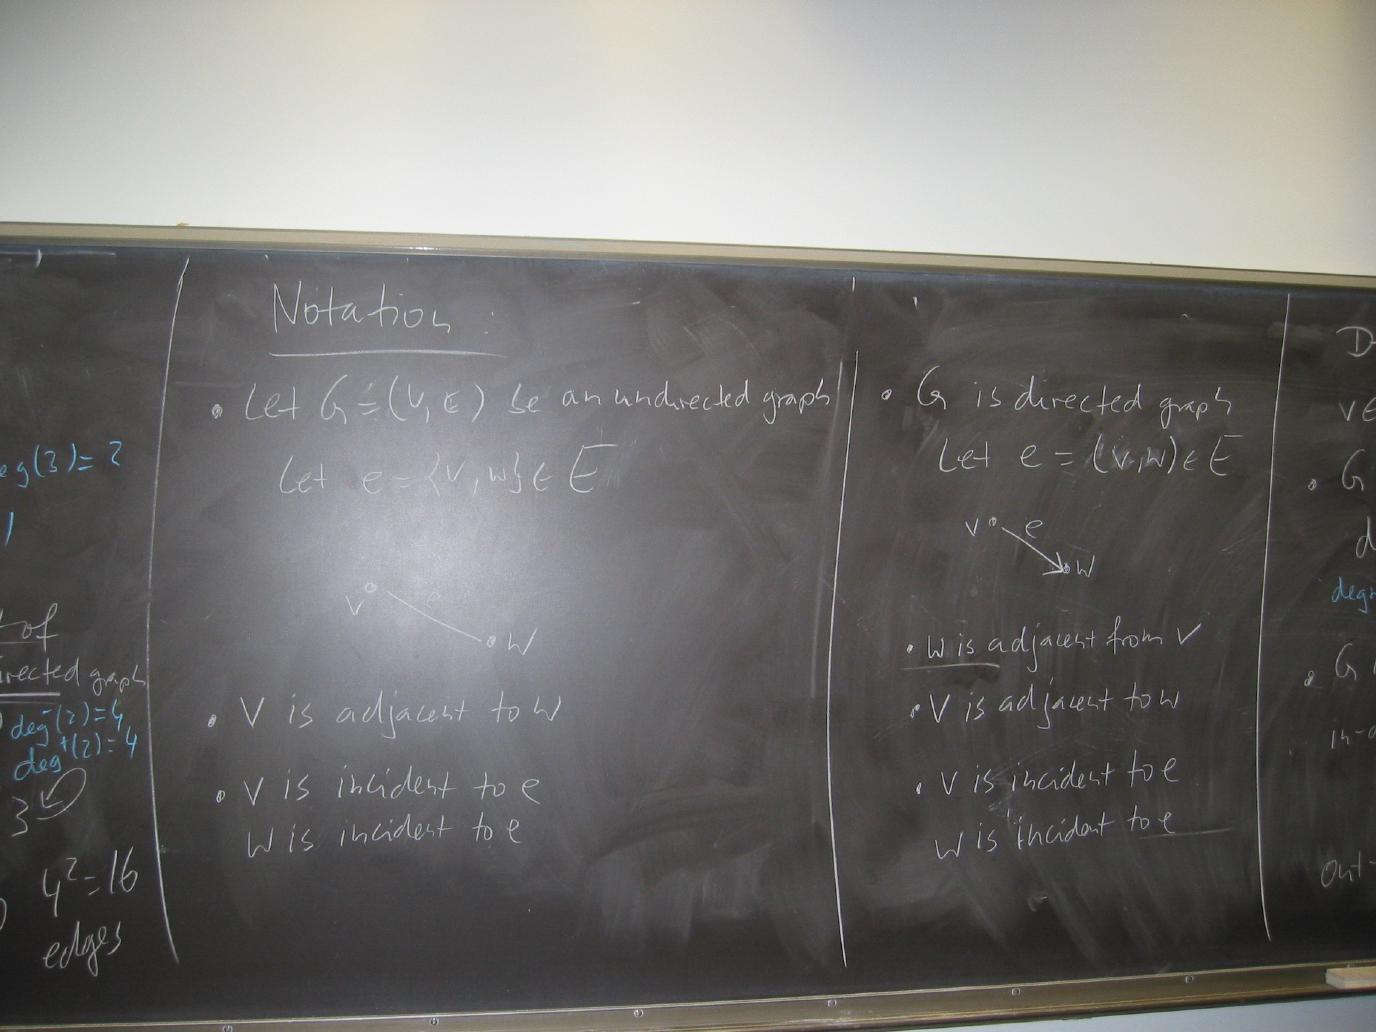 deg(3)=2
1
of
directed graph
deg⁻(2)=4
deg⁺(2)=4
3
4²=16
edges
Notation:
• Let G=(V,E) be an undirected graph
Let e={v,w}∈E
v
e
w
• v is adjacent to w
• v is incident to e
w is incident to e
• G is directed graph
Let e=(v,w)∈E
v
e
w
• w is adjacent from v
• v is adjacent to w
• v is incident to e
w is incident to e
D
v∈
• G
d
deg
• G
in-
out-